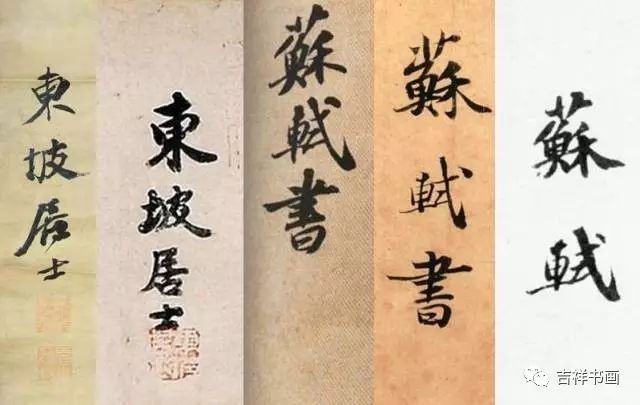 東坡居士
東坡居士
蘇軾書
蘇軾書
蘇軾
吉祥书画